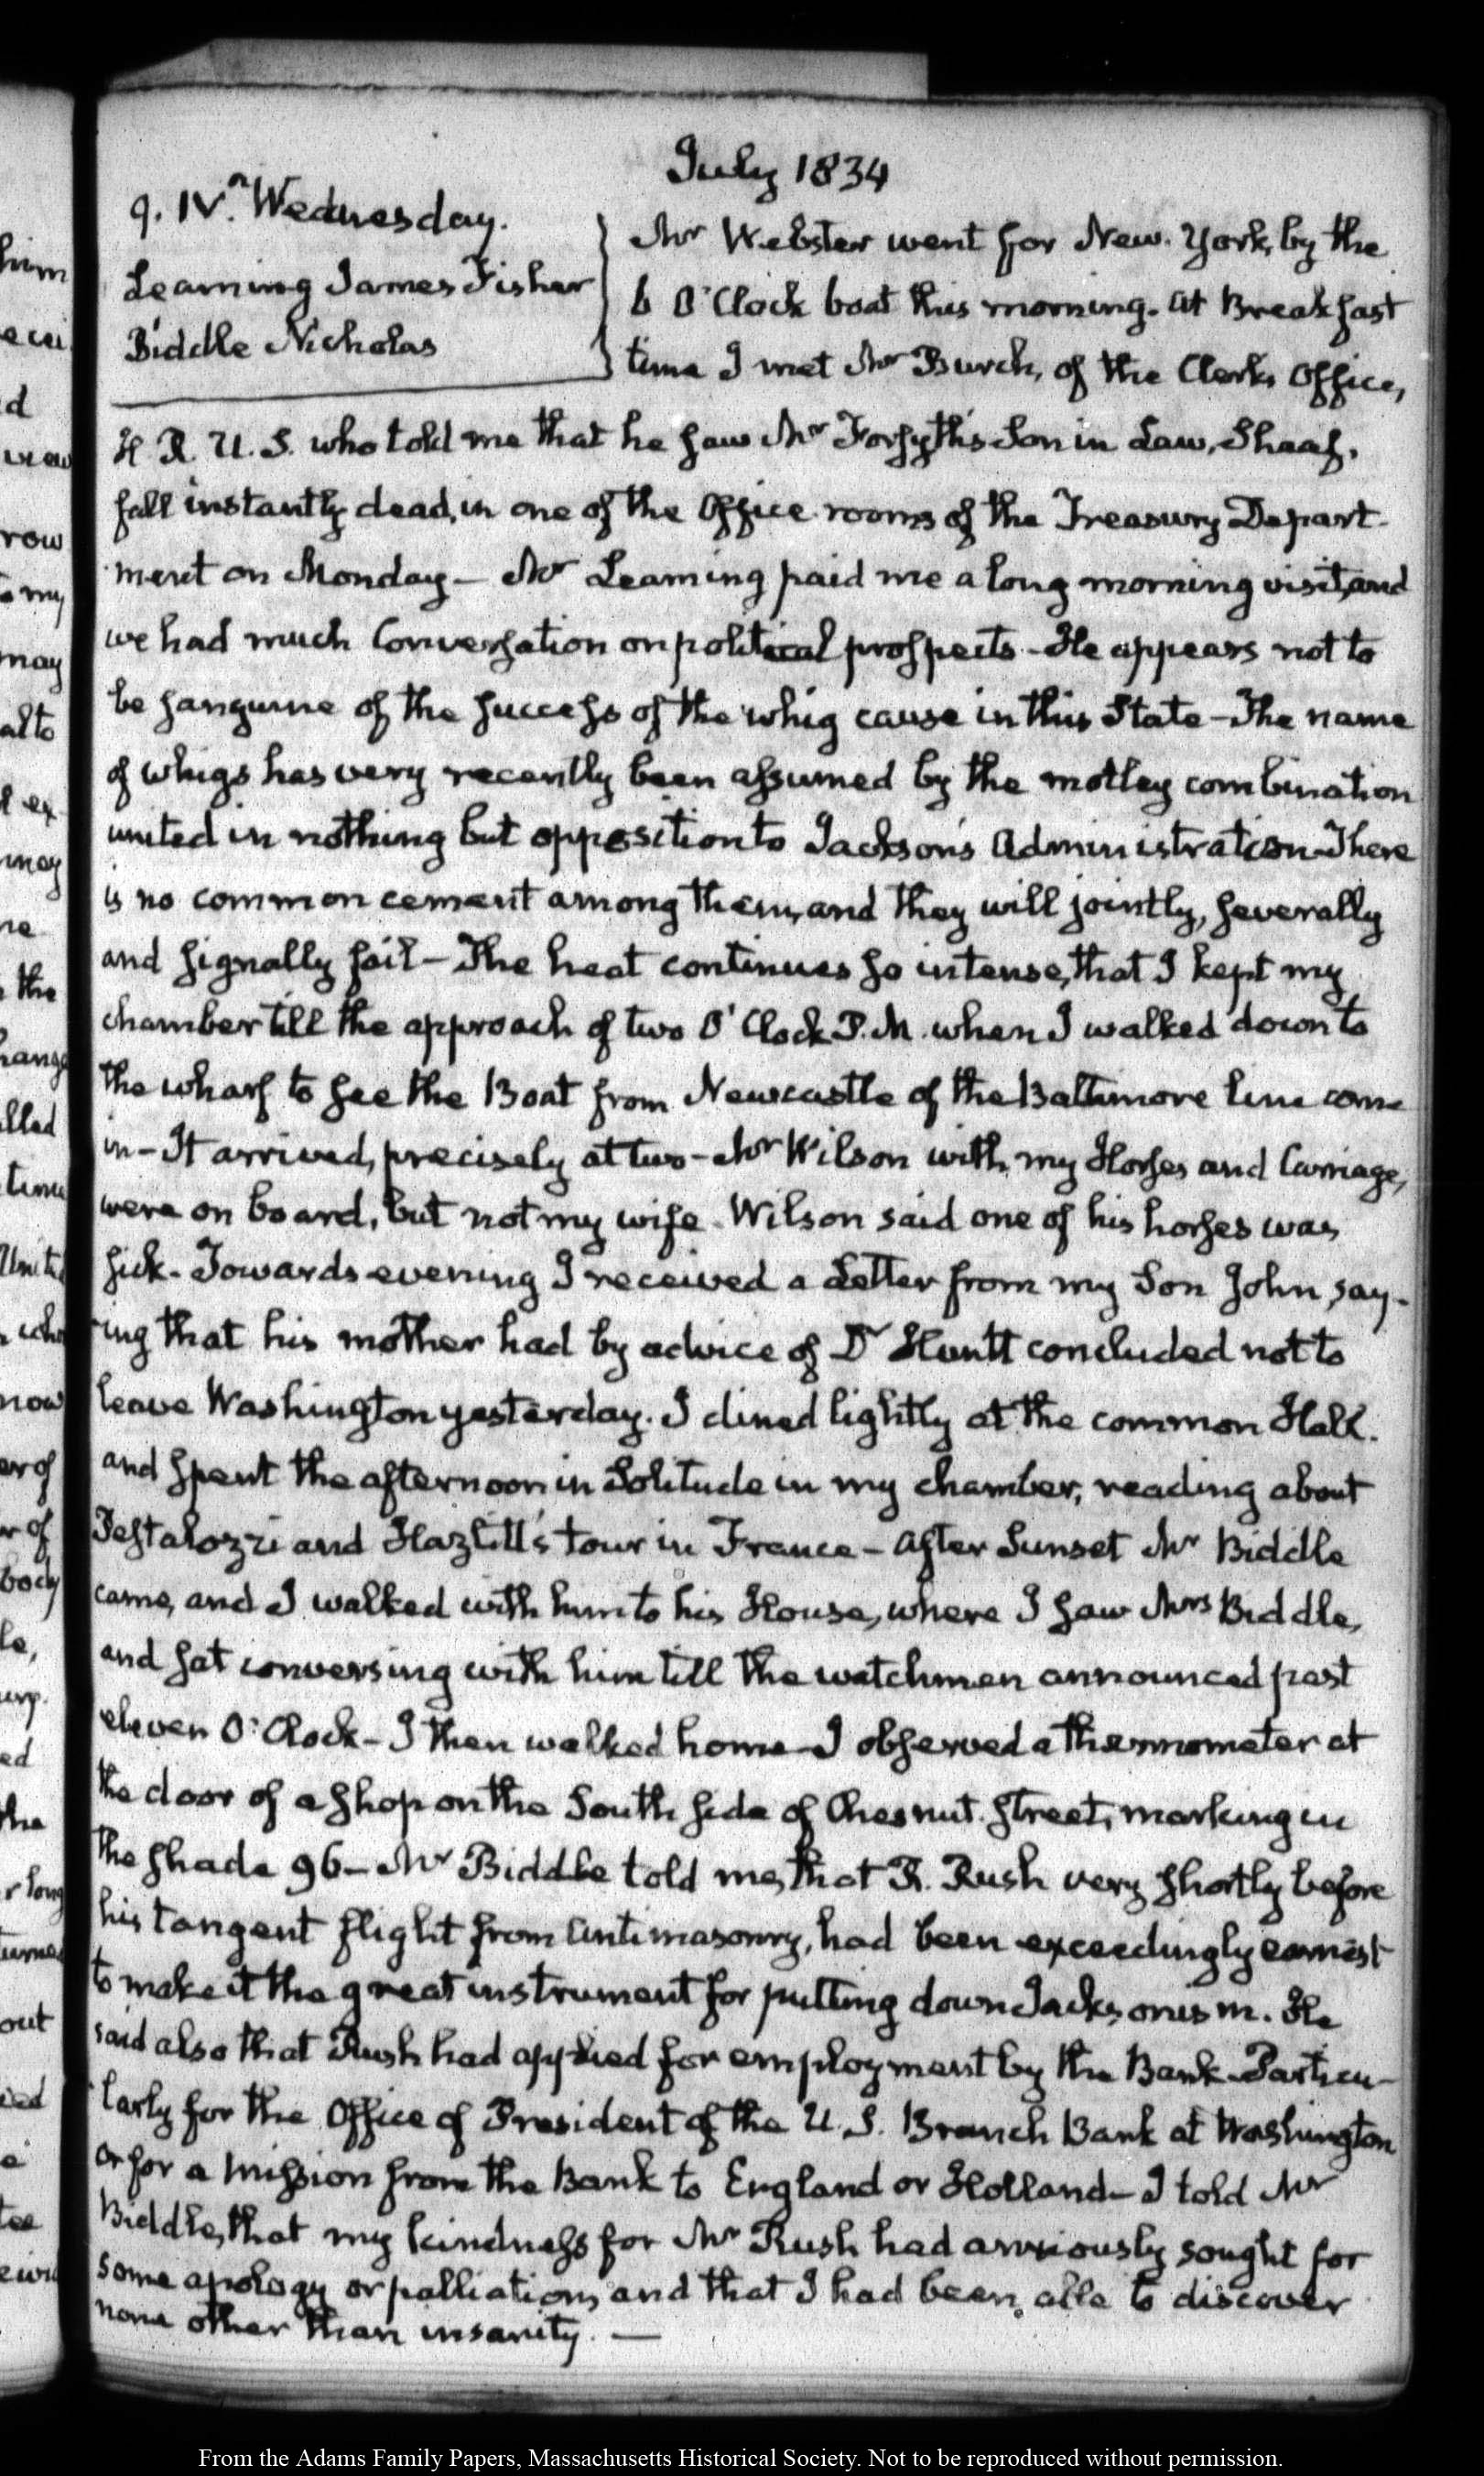 July 1834
9. IV. Wednesday.
Leaming James Fisher
Biddle Nicholas
Mr Webster went for New-York, by the
6 O'Clock boat this morning. At Breakfast
time I met Mr Burch, of the Clerk's Office,
H. R. U. S. who told me that he saw Mr Forsyth's Son in Law, Shaaf,
fall instantly dead, in one of the Office rooms of the Treasury Depart-
ment on Monday — Mr Leaming paid me a long morning visit, and
we had much Conversation on political prospects - He appears not to
be sanguine of the success of the whig cause in this State - The name
of whigs has very recently been assumed by the motley combination
united in nothing but opposition to Jackson's Administration - There
is no common cement among them, and they will jointly, severally
and signally fail - The heat continues so intense, that I kept my
chamber till the approach of two O'Clock P.M. when I walked down to
the wharf to see the Boat from Newcastle of the Baltimore line come
in - It arrived, precisely at two - Mr Wilson with my Horses and Carriage,
were on board, but not my wife. Wilson said one of his horses was
sick - Towards evening I received a Letter from my Son John, say-
ing that his mother had by advice of Dr Huntt concluded not to
leave Washington yesterday. I dined lightly at the common Hall.
and spent the afternoon in Solitude in my chamber, reading about
Pestalozzi and Hazlitt's tour in France - After Sunset Mr Biddle
came, and I walked with him to his House, where I saw Mrs Biddle,
and sat conversing with him till the watchmen announced past
eleven O'Clock - I then walked home - I observed a thermometer at
the door of a shop on the South side of Chesnut. street, marking in
the shade 96 - Mr Biddle told me, that R. Rush very shortly before
his tangent flight from Antimasonry, had been exceedingly earnest
to make it the great instrument for putting down Jacksonism. He
said also that Rush had applied for employment by the Bank - Particu-
larly for the Office of President of the U. S. Branch Bank at Washington
or for a Mission from the Bank to England or Holland - I told Mr
Biddle, that my kindness for Mr Rush had anxiously sought for
some apology or palliation, and that I had been able to discover
none other than insanity. —
From the Adams Family Papers, Massachusetts Historical Society. Not to be reproduced without permission.